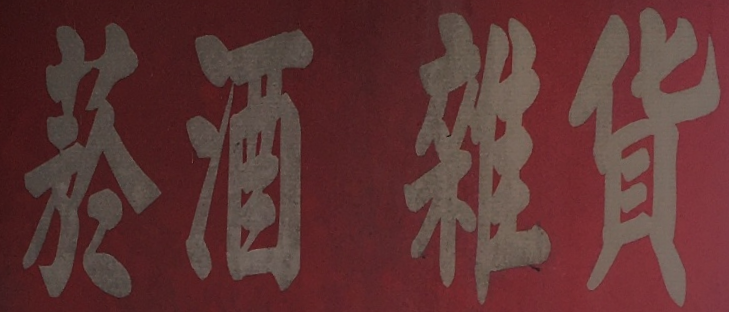 菸酒 雜貨